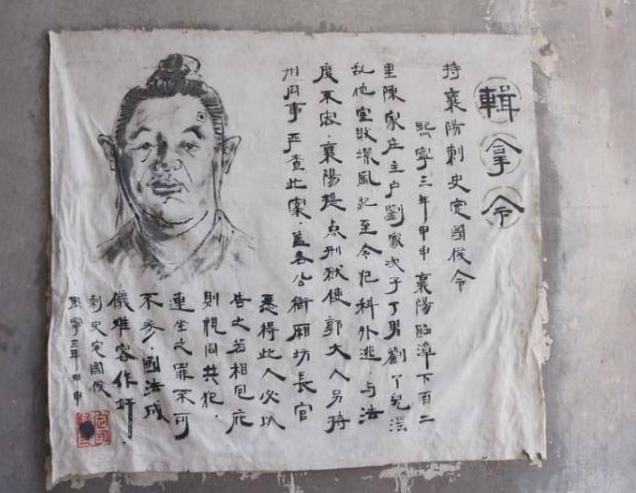 輯拿令
持襄陽刺史定國侯令
熙寧三年甲申襄陽臨漳下百二
里陳家庄主户劉家次子丁男劉丫兒淫
乱他室败潔風起至今犯科外逃与法
度不容襄陽提点刑狱使郭大人另持
州同事严查此案盖各公衙厢坊長官
悉得此人必以
告之若相包庇
则視同共犯
連坐之罪不可
不参国法成
儀堆容作奸
刺史定國侯
熙寧三年甲申